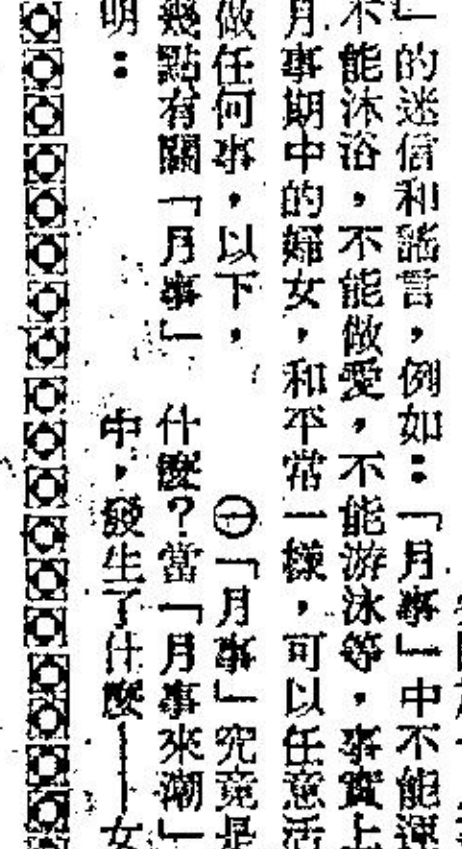 」的迷信和謠言，例如：「月事」中不能運
不能沐浴，不能做愛，不能游泳等，事實上
月事期中的婦女，和平常一樣，可以任意活
做任何事，以下，
幾點有關「月事」
明：
㊀「月事」究竟是
什麼？當「月事來潮」
中，發生了什麼——女